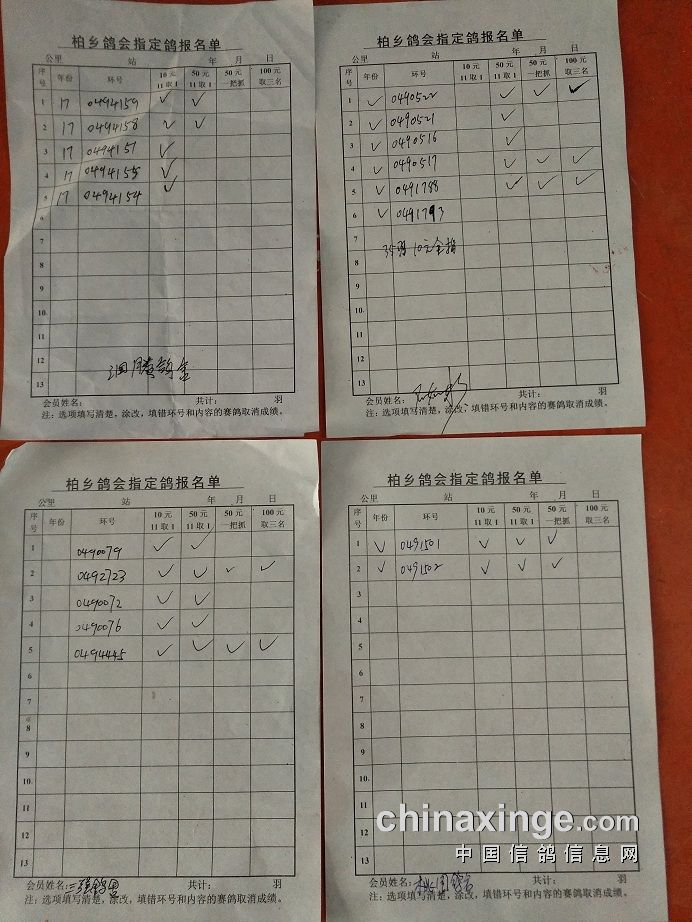 柏乡鸽会指定鸽报名单
公里 站 年 月 日
序号 年份 环号 10元 11取1 50元 11取1 50元 一把抓 100元 取三名
1 17 0494159 ✓ ✓
2 17 0494158 ✓ ✓
3 17 0494157 ✓
4 17 0494155 ✓
5 17 0494154 ✓
6
7
8
9
10
11
12
13
会员姓名: 共计: 羽
注:选项填写清楚,涂改,填错环号和内容的赛鸽取消成绩。
柏乡鸽会指定鸽报名单
公里 站 年 月 日
序号 年份 环号 10元 11取1 50元 11取1 50元 一把抓 100元 取三名
1 ✓ 0490522 ✓ ✓ ✓
2 ✓ 0490521 ✓
3 ✓ 0490516 ✓
4 ✓ 0490517 ✓ ✓ ✓
5 ✓ 0491758 ✓ ✓ ✓
6 ✓ 0491793
7 35羽10元全指
8
9
10
11
12
13
会员姓名: 共计: 羽
注:选项填写清楚,涂改,填错环号和内容的赛鸽取消成绩。
柏乡鸽会指定鸽报名单
公里 站 年 月 日
序号 年份 环号 10元 11取1 50元 11取1 50元 一把抓 100元 取三名
1 0490079 ✓ ✓
2 0492723 ✓ ✓ ✓ ✓
3 0490072 ✓ ✓
4 0490076 ✓ ✓
5 0494445 ✓ ✓ ✓ ✓
6
7
8
9
10
11
12
13
会员姓名: 共计: 羽
注:选项填写清楚,涂改,填错环号和内容的赛鸽取消成绩。
柏乡鸽会指定鸽报名单
公里 站 年 月 日
序号 年份 环号 10元 11取1 50元 11取1 50元 一把抓 100元 取三名
1 ✓ 0491501 ✓ ✓ ✓
2 ✓ 0491502 ✓ ✓ ✓
3
4
5
6
7
8
9
10
11
12
13
会员姓名: 共计: 羽
注:选项填写清楚,涂改,填错环号和内容的赛鸽取消成绩。
chinaxinge.com
中国信鸽信息网